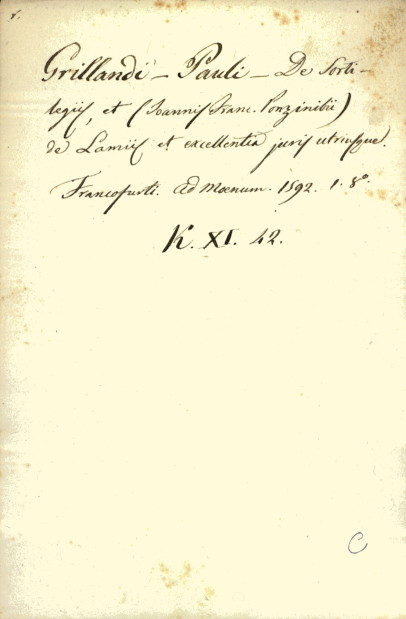 1.
Grillandi - Pauli - De Sorti-
legiis, et (Joannis Franc. Ponzinibii)
de Lamiis et excellentia juris utriusque.
Francofurti. Ad Moenum. 1592. 1. 8º.
K. XI. 42.
C